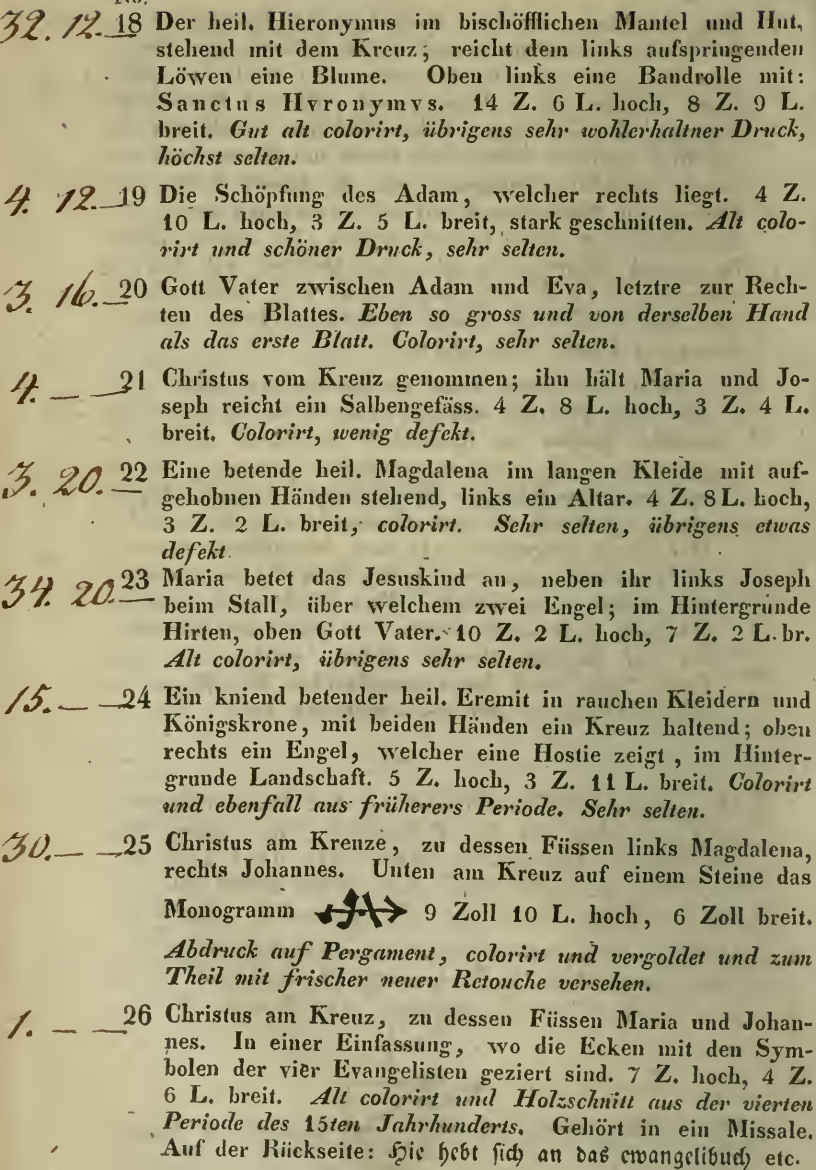 No.
32. 12. 18 Der heil. Hieronymus im bischöfflichen Mantel und Hut,
stehend mit dem Kreuz; reicht dem links aufspringenden
Löwen eine Blume. Oben links eine Bandrolle mit:
Sanctus Hyronymvs. 14 Z. 6 L. hoch, 8 Z. 9 L.
breit. Gut alt colorirt, übrigens sehr wohlerhaltner Druck,
höchst selten.
4. 12. 19 Die Schöpfung des Adam, welcher rechts liegt. 4 Z.
10 L. hoch, 3 Z. 5 L. breit, stark geschnitten. Alt colo-
rirt und schöner Druck, sehr selten.
3. 16. 20 Gott Vater zwischen Adam und Eva, letztre zur Rech-
ten des Blattes. Eben so gross und von derselben Hand
als das erste Blatt. Colorirt, sehr selten.
4. — — 21 Christus vom Kreuz genommen; ihn hält Maria und Jo-
seph reicht ein Salbengefäss. 4 Z. 8 L. hoch, 3 Z. 4 L.
breit. Colorirt, wenig defekt.
3. 20. — 22 Eine betende heil. Magdalena im langen Kleide mit auf-
gehobnen Händen stehend, links ein Altar. 4 Z. 8 L. hoch,
3 Z. 2 L. breit, colorirt. Sehr selten, übrigens etwas
defekt.
34. 20. — 23 Maria betet das Jesuskind an, neben ihr links Joseph
beim Stall, über welchem zwei Engel; im Hintergrunde
Hirten, oben Gott Vater. 10 Z. 2 L. hoch, 7 Z. 2 L. br.
Alt colorirt, übrigens sehr selten.
15. — — 24 Ein kniend betender heil. Eremit in rauchen Kleidern und
Königskrone, mit beiden Händen ein Kreuz haltend; oben
rechts ein Engel, welcher eine Hostie zeigt, im Hinter-
grunde Landschaft. 5 Z. hoch, 3 Z. 11 L. breit. Colorirt
und ebenfall aus früherers Periode. Sehr selten.
30. — — 25 Christus am Kreuze, zu dessen Füssen links Magdalena,
rechts Johannes. Unten am Kreuz auf einem Steine das
Monogramm 9 Zoll 10 L. hoch, 6 Zoll breit.
Abdruck auf Pergament, colorirt und vergoldet und zum
Theil mit frischer neuer Retouche versehen.
1. — — 26 Christus am Kreuz, zu dessen Füssen Maria und Johan-
nes. In einer Einfassung, wo die Ecken mit den Sym-
bolen der vier Evangelisten geziert sind. 7 Z. hoch, 4 Z.
6 L. breit. Alt colorirt und Holzschnitt aus der vierten
Periode des 15ten Jahrhunderts. Gehört in ein Missale.
Auf der Rückseite: Hie hebt sich an das ewangelibuch etc.